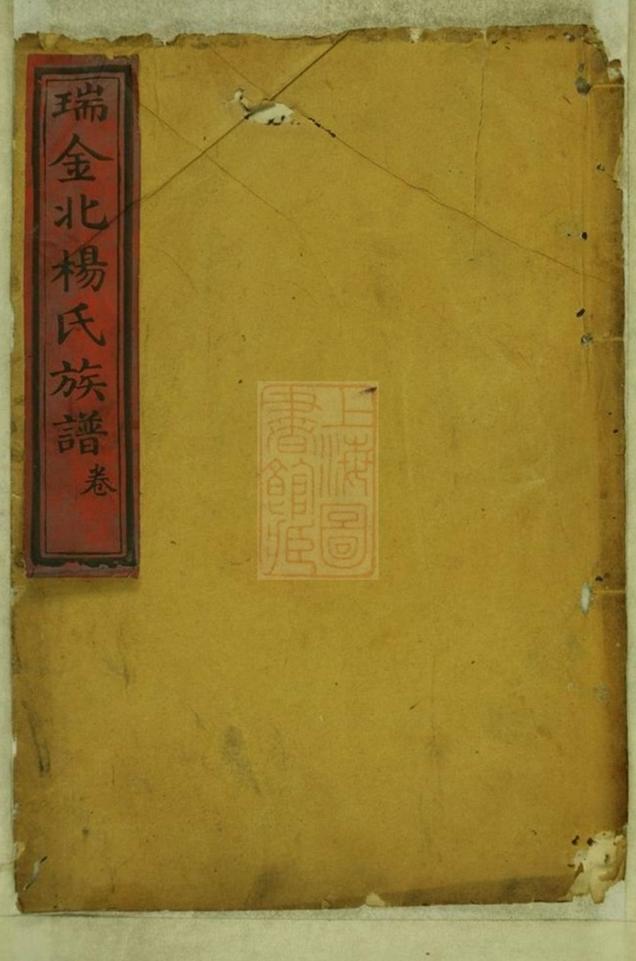 瑞金北楊氏族譜
卷
上海圖
書館藏